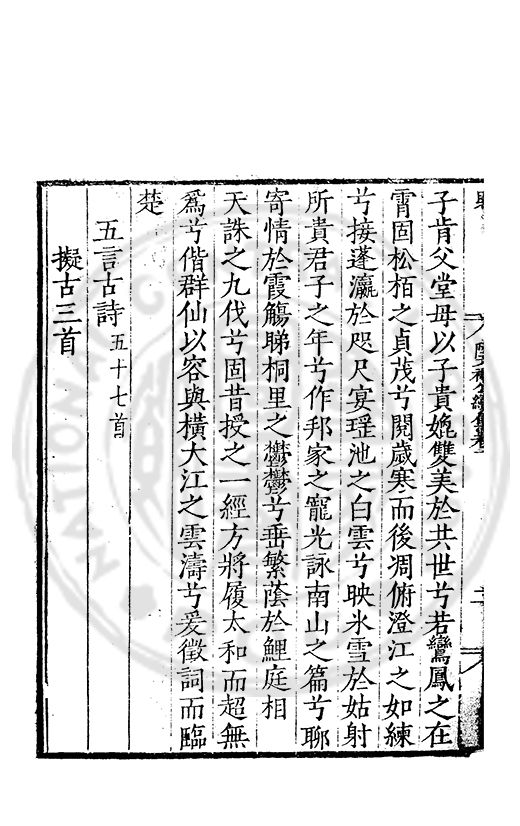 子肯父堂母以子貴媲雙美於共世兮若鸞鳳之在
霄固松栢之貞茂兮閱歲寒而後凋俯澄江之如練
兮接蓬瀛於咫尺宴瑶池之白雲兮映氷雪於姑射
所貴君子之年兮作邦家之寵光詠南山之篇兮聊
寄情於霞觴睇桐里之欝欝兮垂繁蔭於鯉庭相
天誅之九伐兮固昔授之一經方將履太和而超無
爲兮偕群仙以容與橫大江之雲濤兮爰徵詞而臨
楚
五言古詩五十七首
擬古三首